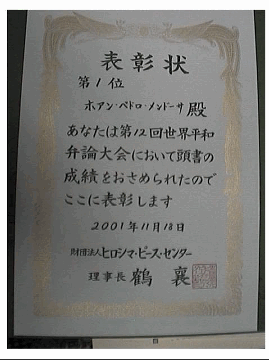 表彰状
第1位
ホアン・ペドロ・メンドーサ殿
あなたは第12回世界平和
弁論大会において頭書の
成績をおさめられたので
ここに表彰します
2001年11月18日
財団法人ヒロシマ・ピース・センター
理事長 鶴 襄